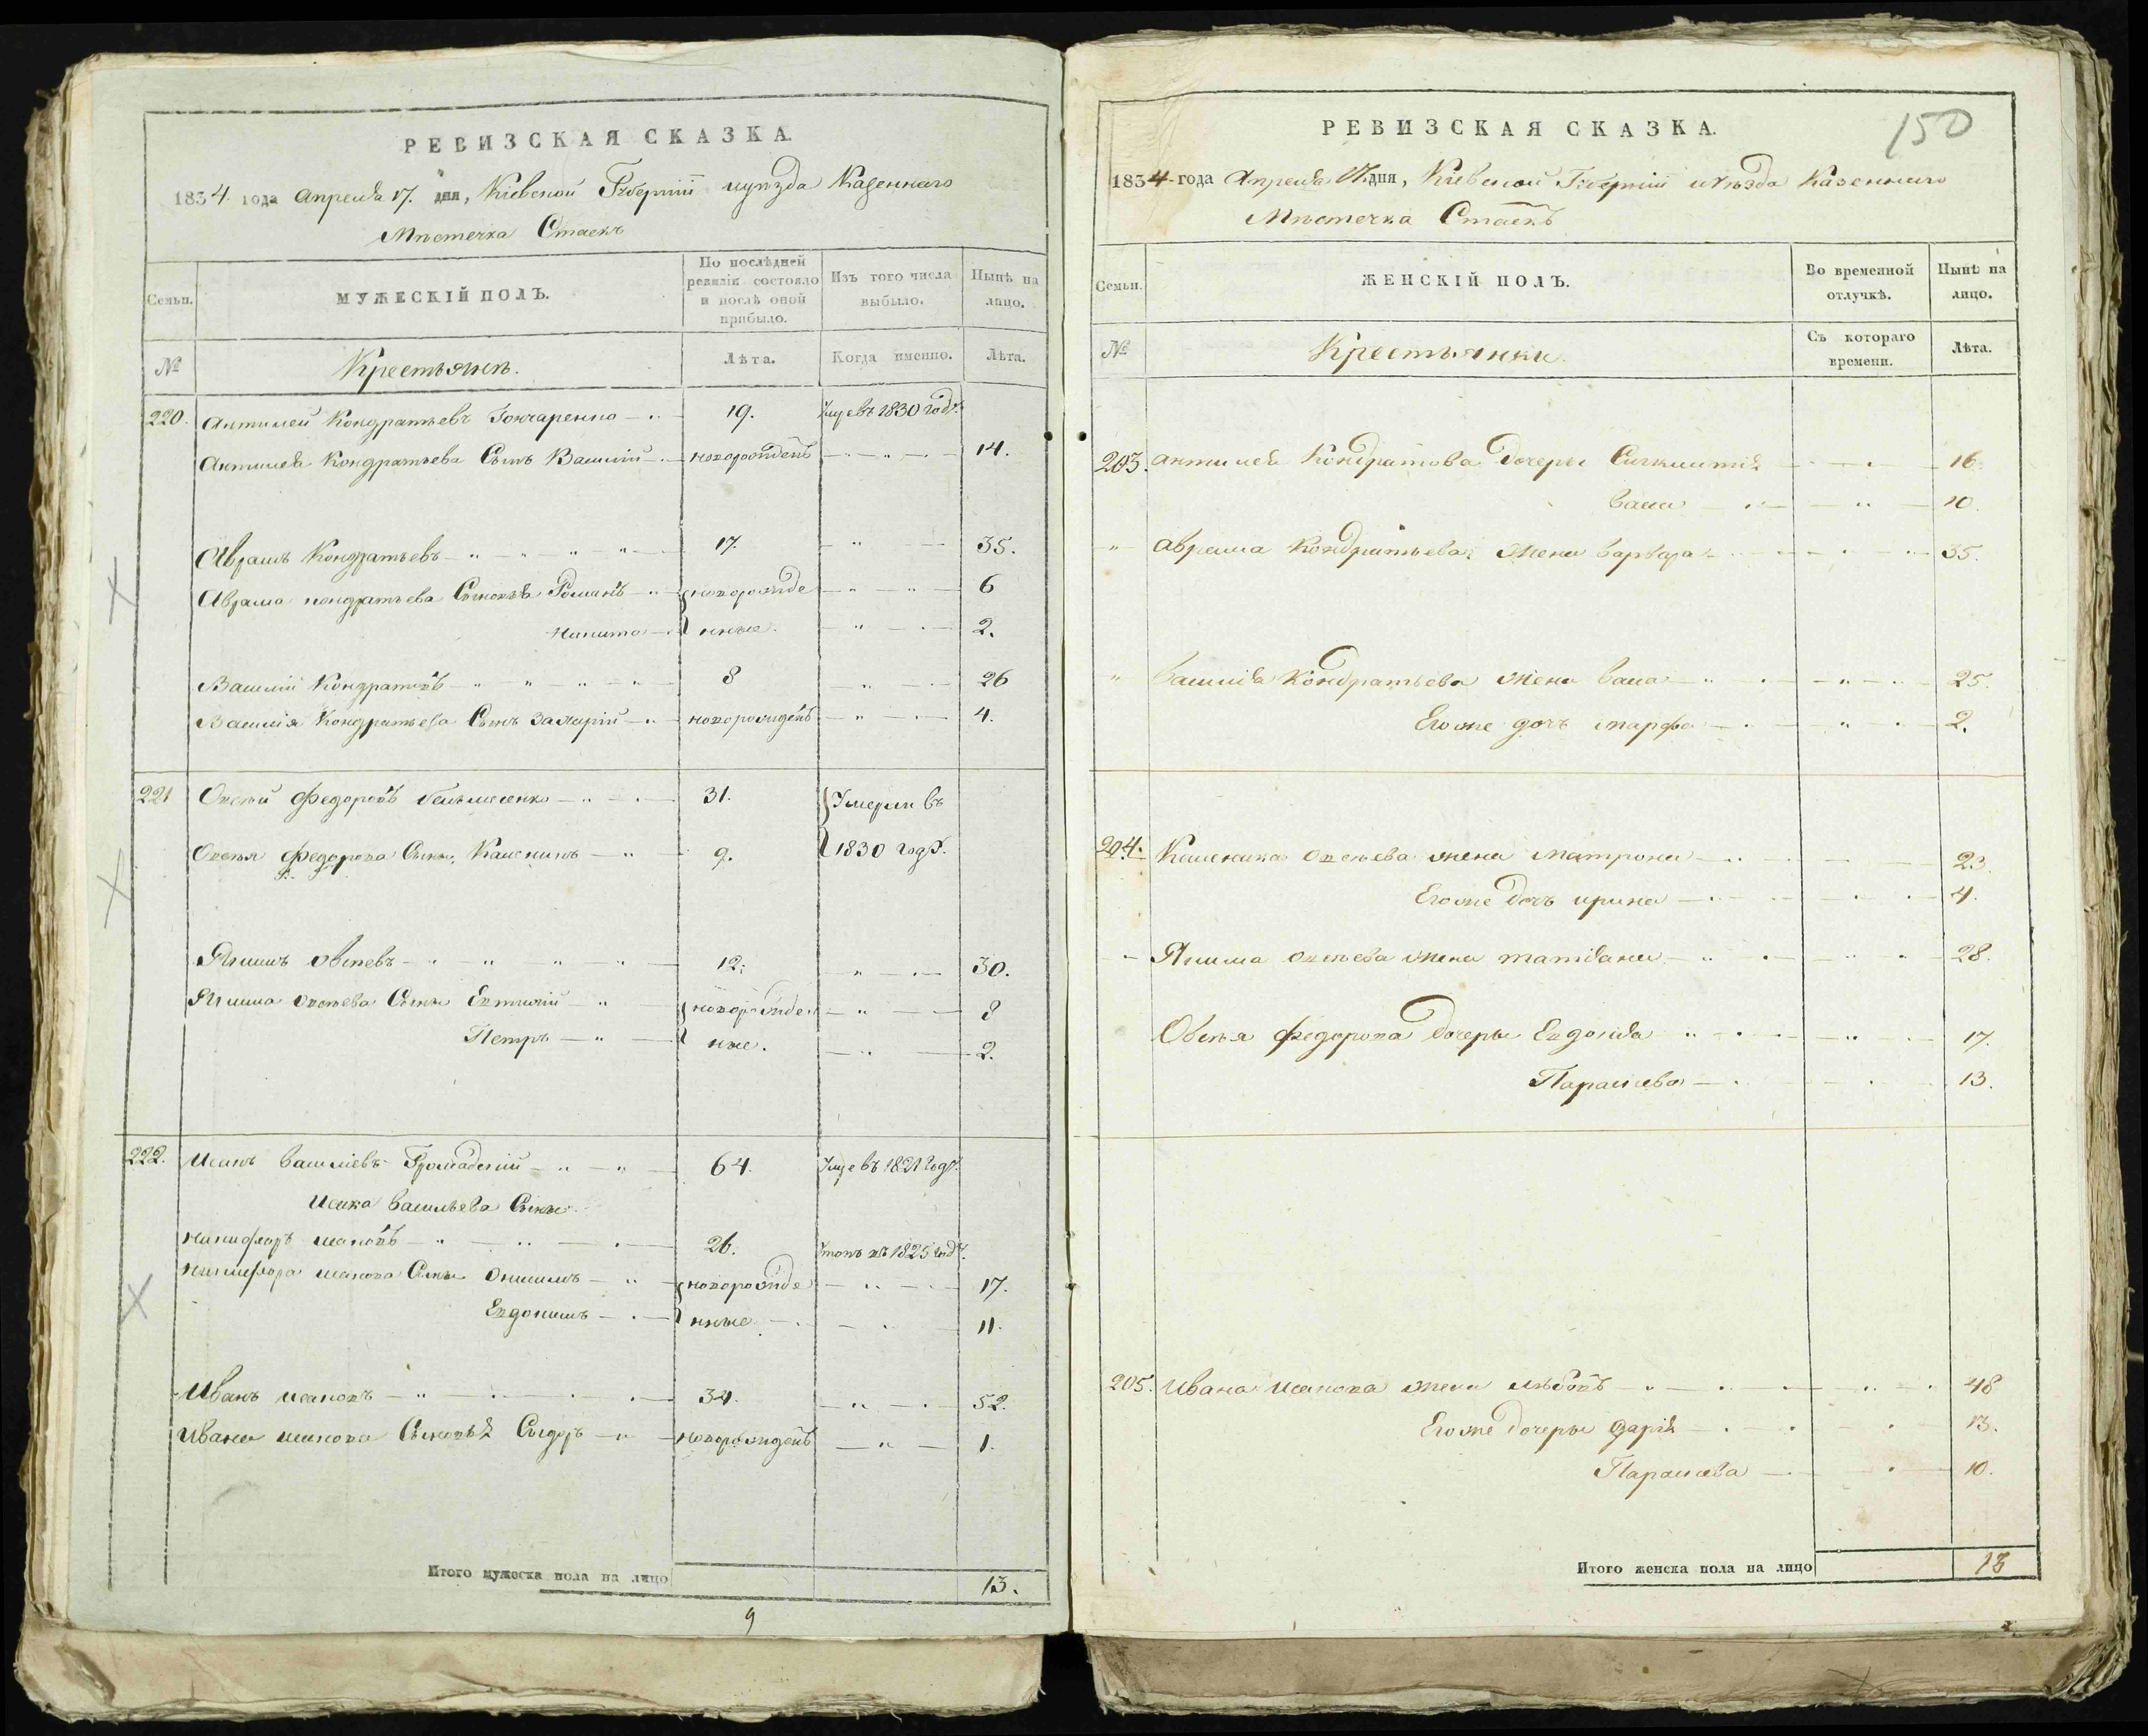 РЕВИЗСКАЯ СКАЗКА.
1834 года Апреля 17. дня, Кіевской Губерніи и уѣзда Казеннаго
Мѣстечка Стаекъ
Семьи.
МУЖЕСКІЙ ПОЛЪ.
По послѣдней ревизіи состояло и послѣ оной прибыло.
Изъ того числа выбыло.
Нынѣ на лицо.
№
Крестьянѣ.
Лѣта.
Когда именно.
Лѣта.
220. Антипей Кондратьевъ Гончаренко 19. Умре въ 1830 годѣ.
Антипея Кондратьева Сынъ Василій новорожденъ 14.
Аврамъ Кондратьевъ 17. 35.
Аврама Кондратьева Сыновья Романъ новорожде 6
Никита нные. 2.
Василій Кондратовъ 8 26
Василія Кондратьева Сынъ Захарій новорожденъ 4.
221 Овсѣй Федоровъ 31. Умерли въ
Овсѣя Федорова Сынъ Каленикъ 9. 1830 годѣ.
Якимъ Овсѣевъ 12. 30.
Якима Овсѣева Сыны Евтихій новорожден 8
Петръ ные. 2.
222. Исакъ Василіевъ Громадскій 64. Умре въ 1821 годѣ.
Исака Васильева Сыны
Никифоръ Исаковъ 26. Утопъ въ 1825 годѣ.
Никифора Исакова Сыны Онисимъ новорожде 17.
Евдокимъ нные 11.
Иванъ Исаковъ 34. 52.
Ивана Исакова Сыновья Сыдоръ новорожденъ 1.
Итого мужеска пола на лицо 13.
9
150
РЕВИЗСКАЯ СКАЗКА.
1834 года Апреля 17. дня, Кіевской Губерніи и уѣзда Казеннаго
Мѣстечка Стаекъ
Семьи.
ЖЕНСКІЙ ПОЛЪ.
Во временной отлучкѣ.
Нынѣ на лицо.
№
Крестьянки.
Съ котораго времени.
Лѣта.
203. Антипея Кондратова Дочеры 16.
Васа 10.
Аврама Кондратьева Жена Варвара 35.
Василія Кондратьева Жена Васа 25.
Его же дочь Марфа 2.
204. Каленика Овсѣева жена Матрона 23.
Его же Дочь Ирина 4.
Якима Овсѣева жена Татіана 28.
Овсѣя Федорова Дочеры Евдокія 17.
Параскева 13.
205. Ивана Исакова жена Любовъ 48
Его же Дочеры Дарія 13.
Параскева 10.
Итого женска пола на лицо 13